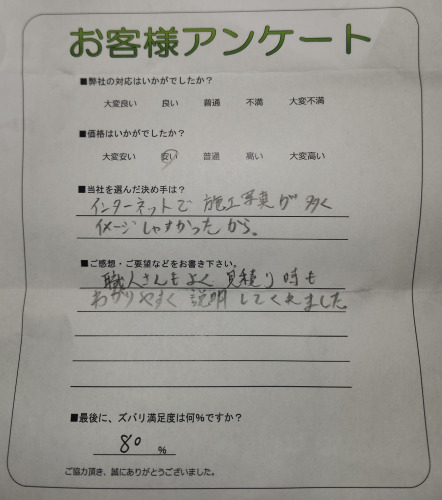 お客様アンケート
■弊社の対応はいかがでしたか？
大変良い 良い 普通 不満 大変不満
■価格はいかがでしたか？
大変安い 安い 普通 高い 大変高い
■当社を選んだ決め手は？
インターネットで 施工写真が 多く
イメージしやすかったから。
■ご感想・ご要望などをお書き下さい。
職人さんもよく 見積り時も
わかりやすく 説明してくれました
■最後に、ズバリ満足度は何％ですか？
80 ％
ご協力頂き、誠にありがとうございました。